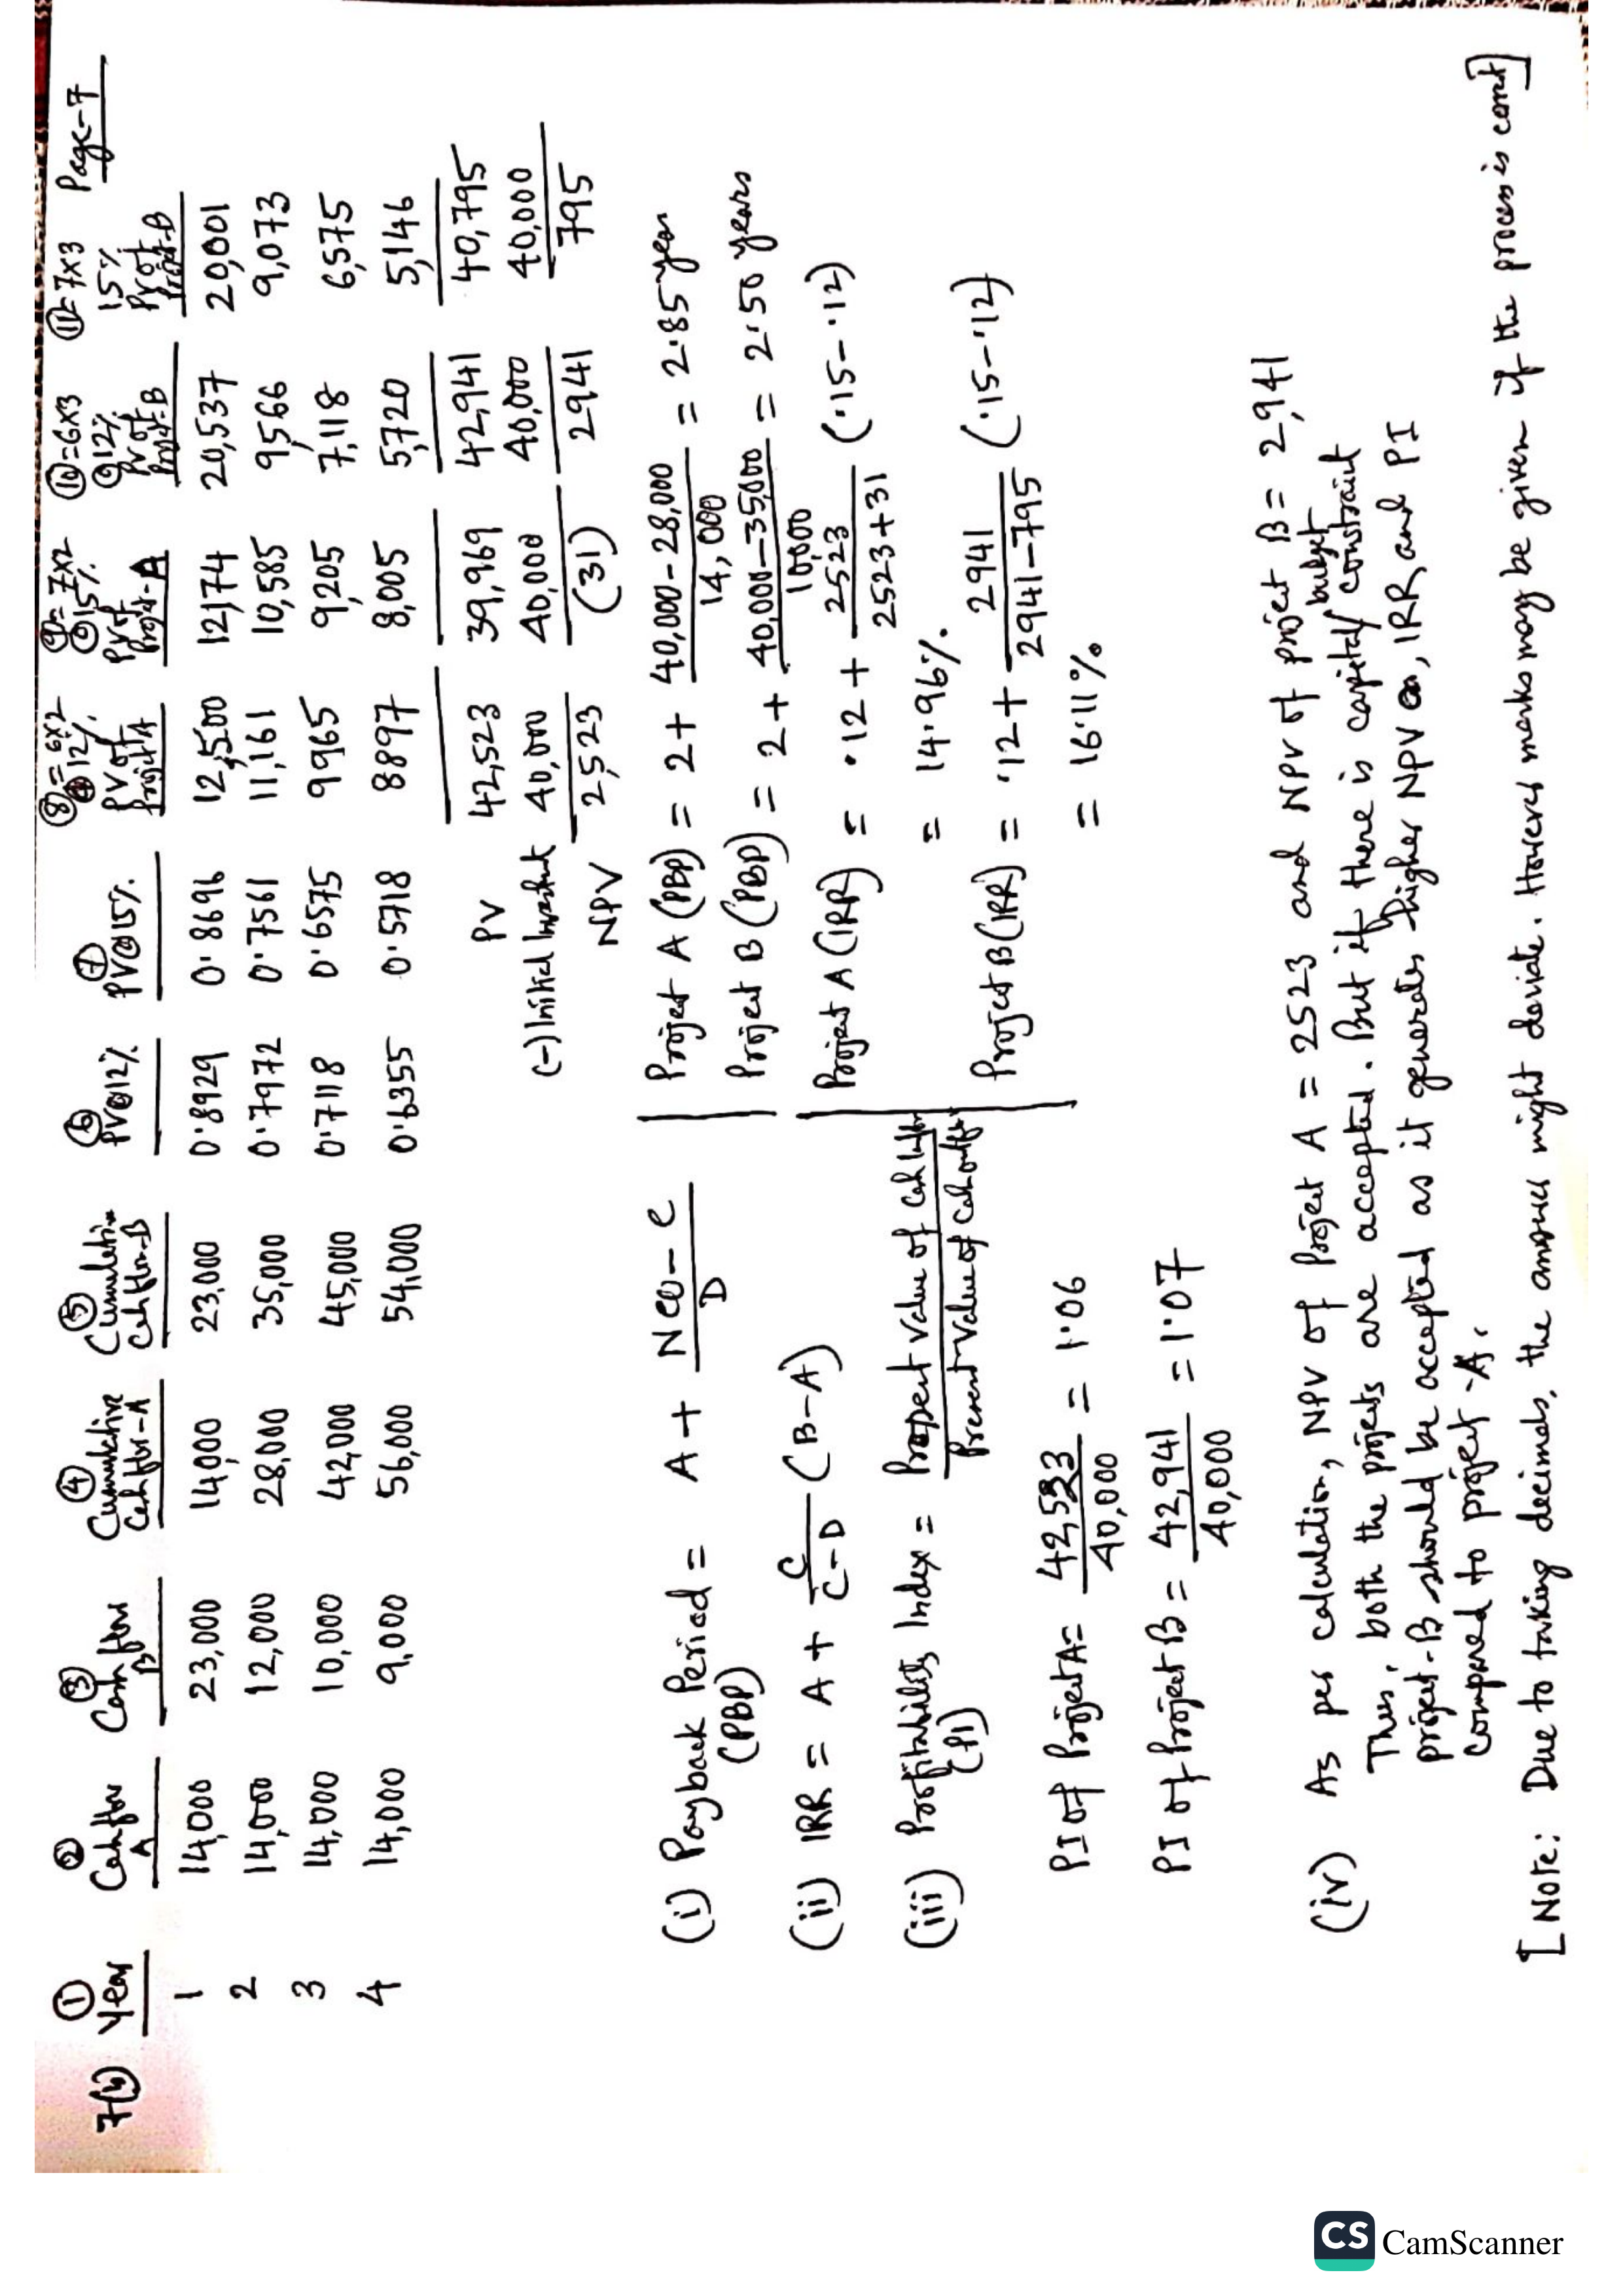 Page-7
7(b) ① Year ② Cash flow A ③ Cash flow B ④ Cumulative Cash flow-A ⑤ Cumulative Cash flow-B ⑥ PV@12% ⑦ PV@15% ⑧=6x2 @12% PV of Project A ⑨=7x2 @15% PV of Projt-A ⑩=6x3 @12% PV of Projt-B ⑪=7x3 15% PV of Projt-B
1 14,000 23,000 14,000 23,000 0.8929 0.8696 12,500 12,174 20,537 20,001
2 14,000 12,000 28,000 35,000 0.7972 0.7561 11,161 10,585 9,566 9,073
3 14,000 10,000 42,000 45,000 0.7118 0.6575 9965 9,205 7,118 6,575
4 14,000 9,000 56,000 54,000 0.6355 0.5718 8897 8,005 5,720 5,146
PV 42,523 39,969 42,941 40,795
(-) Initial Investment 40,000 40,000 40,000 40,000
NPV 2,523 (31) 2941 795
(i) Payback Period (PBP) = A + NCO - C / D
Project A (PBP) = 2 + 40,000-28,000 / 14,000 = 2.85 year
Project B (PBP) = 2 + 40,000-35,000 / 10,000 = 2.50 years
(ii) IRR = A + C / C-D (B-A)
Project A (IRR) = .12 + 2523 / 2523+31 (.15-.12)
= 14.96%
Project B (IRR) = .12 + 2941 / 2941-795 (.15-.12)
= 16.11%
(iii) Profitability Index (PI) = Present Value of Cash Inflow / Present Value of Cash outflow
PI of Project A = 42,523 / 40,000 = 1.06
PI of Project B = 42,941 / 40,000 = 1.07
(iv) As per calculation, NPV of Project A = 2523 and NPV of project B = 2,941
Thus, both the projects are accepted. But if there is capital/budget constraint
project-B should be accepted as it generates higher NPV, IRR and PI
compared to project-A.
[Note: Due to taking decimals, the answer might deviate. However marks may be given if the process is correct]
CS CamScanner